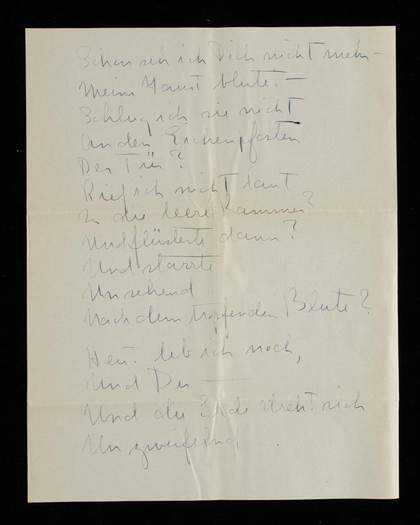 Schon seh ich Dich nicht mehr –
Meine Faust blutet. –
Schlug ich sie nicht
An den Eichenpfosten
Der Tür?
Rief ich nicht laut
In die leere Kammer?
Und flüsterte dann?
Und starrte
Unsehend
Nach dem tropfenden Blute?
leb ich noch,
Und Du —
Und die Erde dreht sich
Un